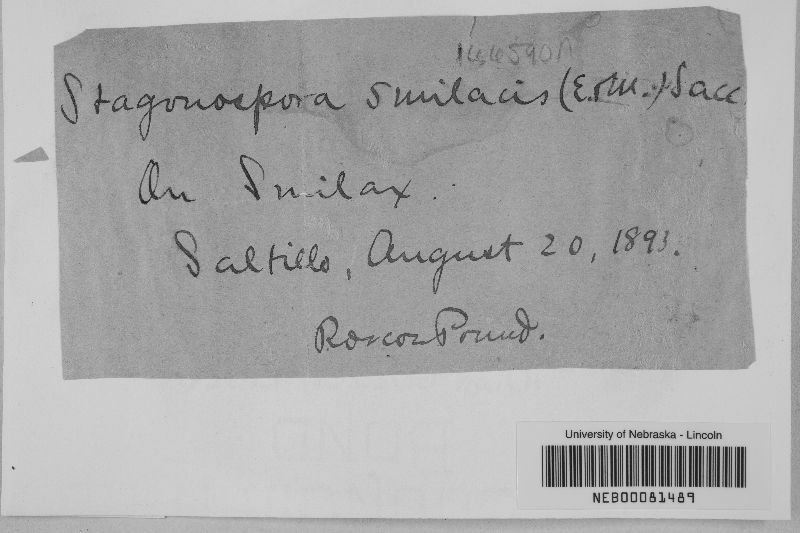 144590A
Stagonospora Smilacis (E. & M.) Sacc
On Smilax.
Saltillo, August 20, 1893.
Roscoe Pound.
University of Nebraska - Lincoln
NEB00081489